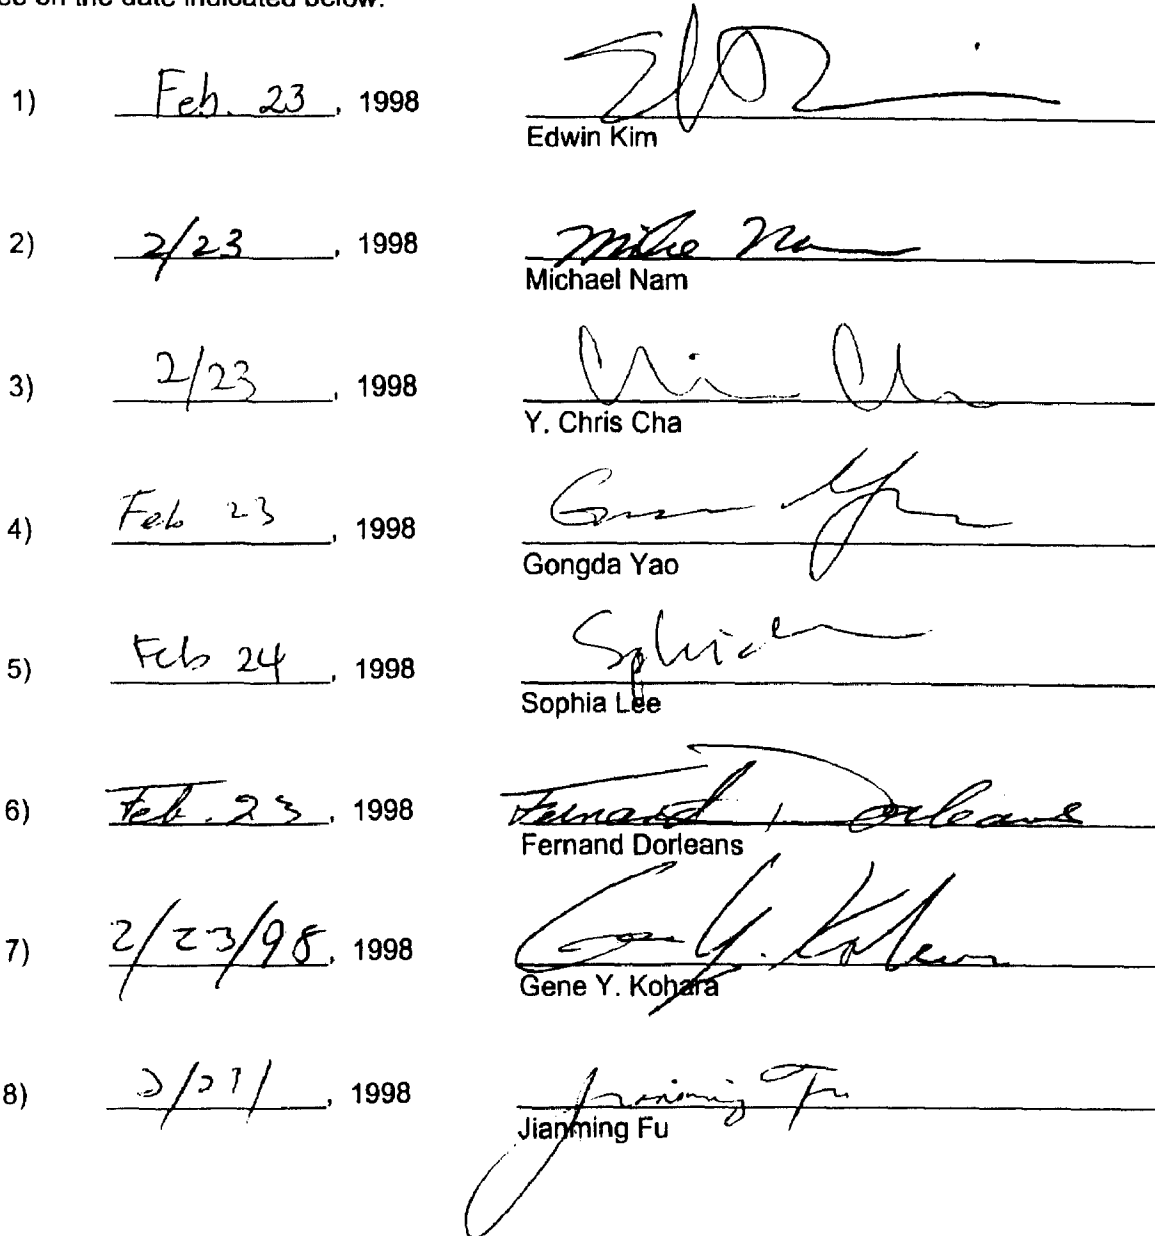 on the date indicated below.
1) Feb. 23, 1998
Edwin Kim
2) 2/23, 1998 Mike Nam
Michael Nam
3) 2/23, 1998 Chris Cha
Y. Chris Cha
4) Feb 23, 1998
Gongda Yao
5) Feb 24, 1998 Sophia
Sophia Lee
6) Feb. 23, 1998 Fernand Dorleans
Fernand Dorleans
7) 2/23/98, 1998 Gene Y. Kohara
Gene Y. Kohara
8) 1998 Jianming Fu
Jianming Fu